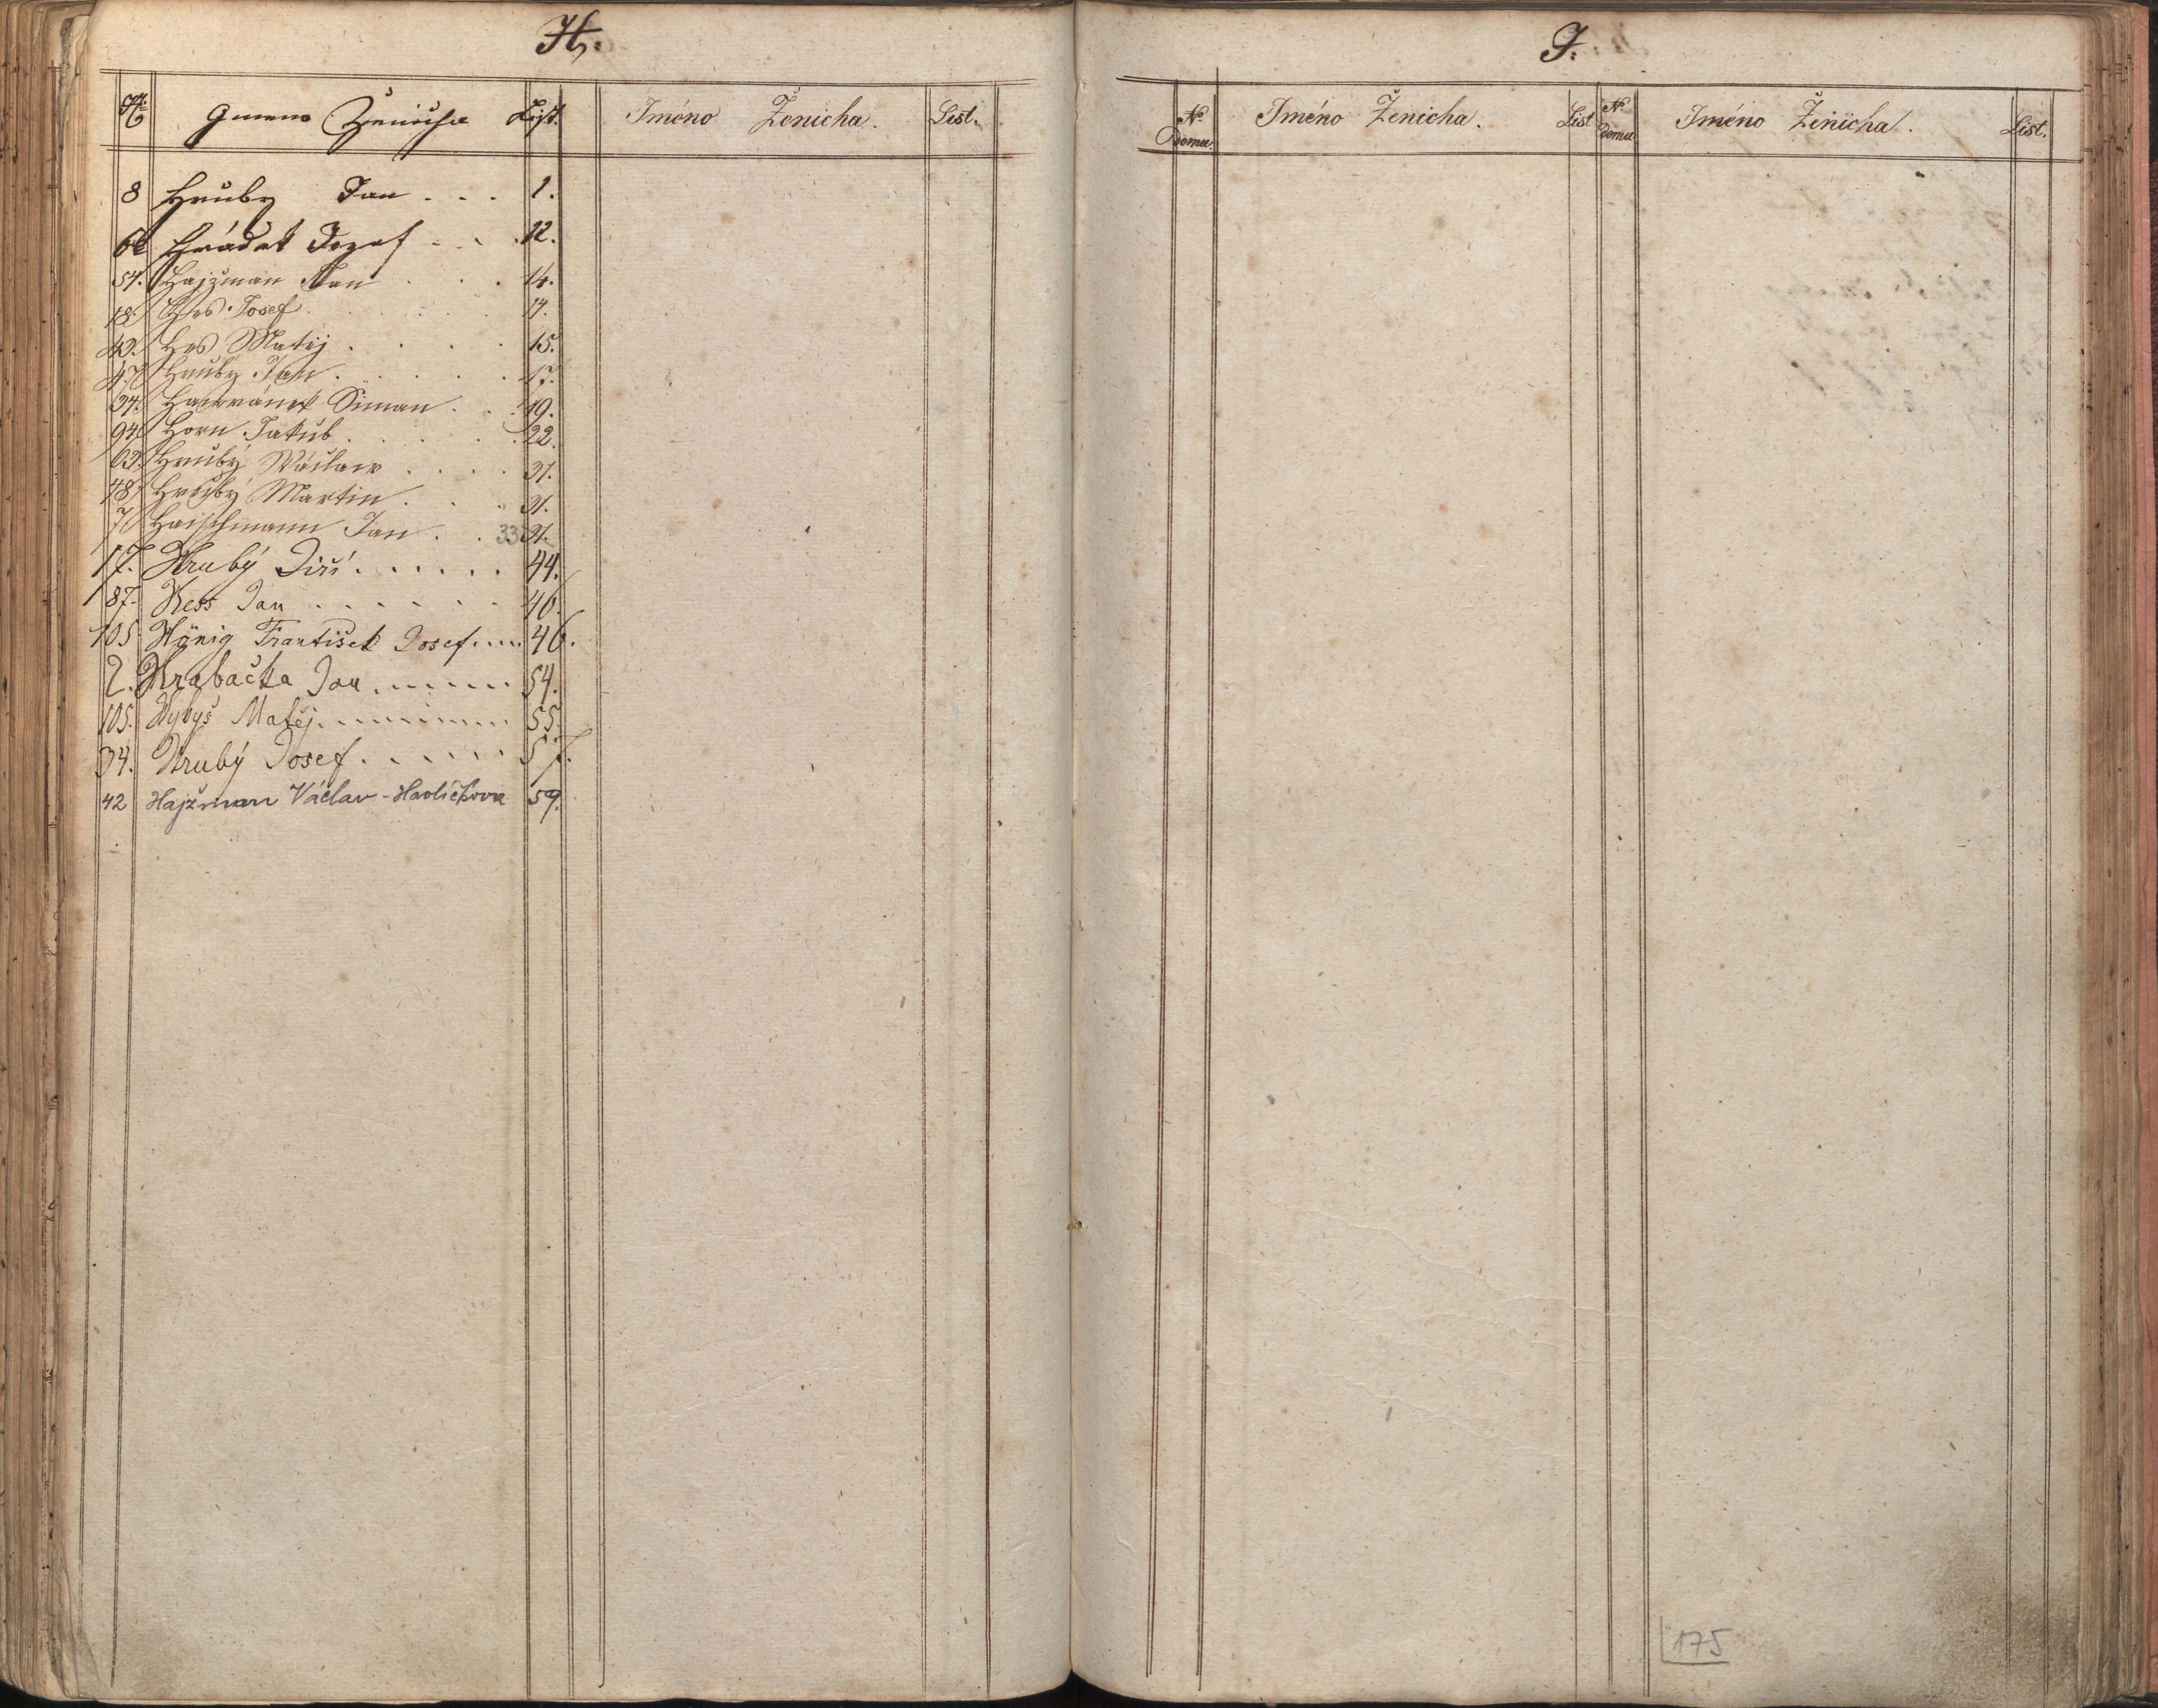 H.
No Gmeno Ženicha List.
Iméno Ženicha. List.
8 Hruby Jan . . . 1.
Hrádek Jozef . . . 12.
54. Hajzman Jan . . . 14.
18. Hes Josef . . . . . . 14.
Hes Matěj . . . . 15.
47 Hrubý Jan . . . . . 17.
34. Hawránek Siman . . . 19.
94 Horn Jakub . . . . . . 22.
63. Hrubý Wáclaw . . . . 31.
48 Hrubý Martin . . . . 31.
7 Haischmann Jan . . 33 31.
17. Hrubý Jiří . . . . . . 44.
87. Hess Jan . . . . . . 46.
105 Hönig František Josef .... 46.
2. Hrabačka Jan ....... 54.
105. Hybyš Matěj ......... 55.
34. Hrubý Josef . . . . . . 57.
42 Hajžman Václav - Havlíčkova 59.
I.
No Domu. Iméno Ženicha. List
No Domu Iméno Ženicha. List.
175